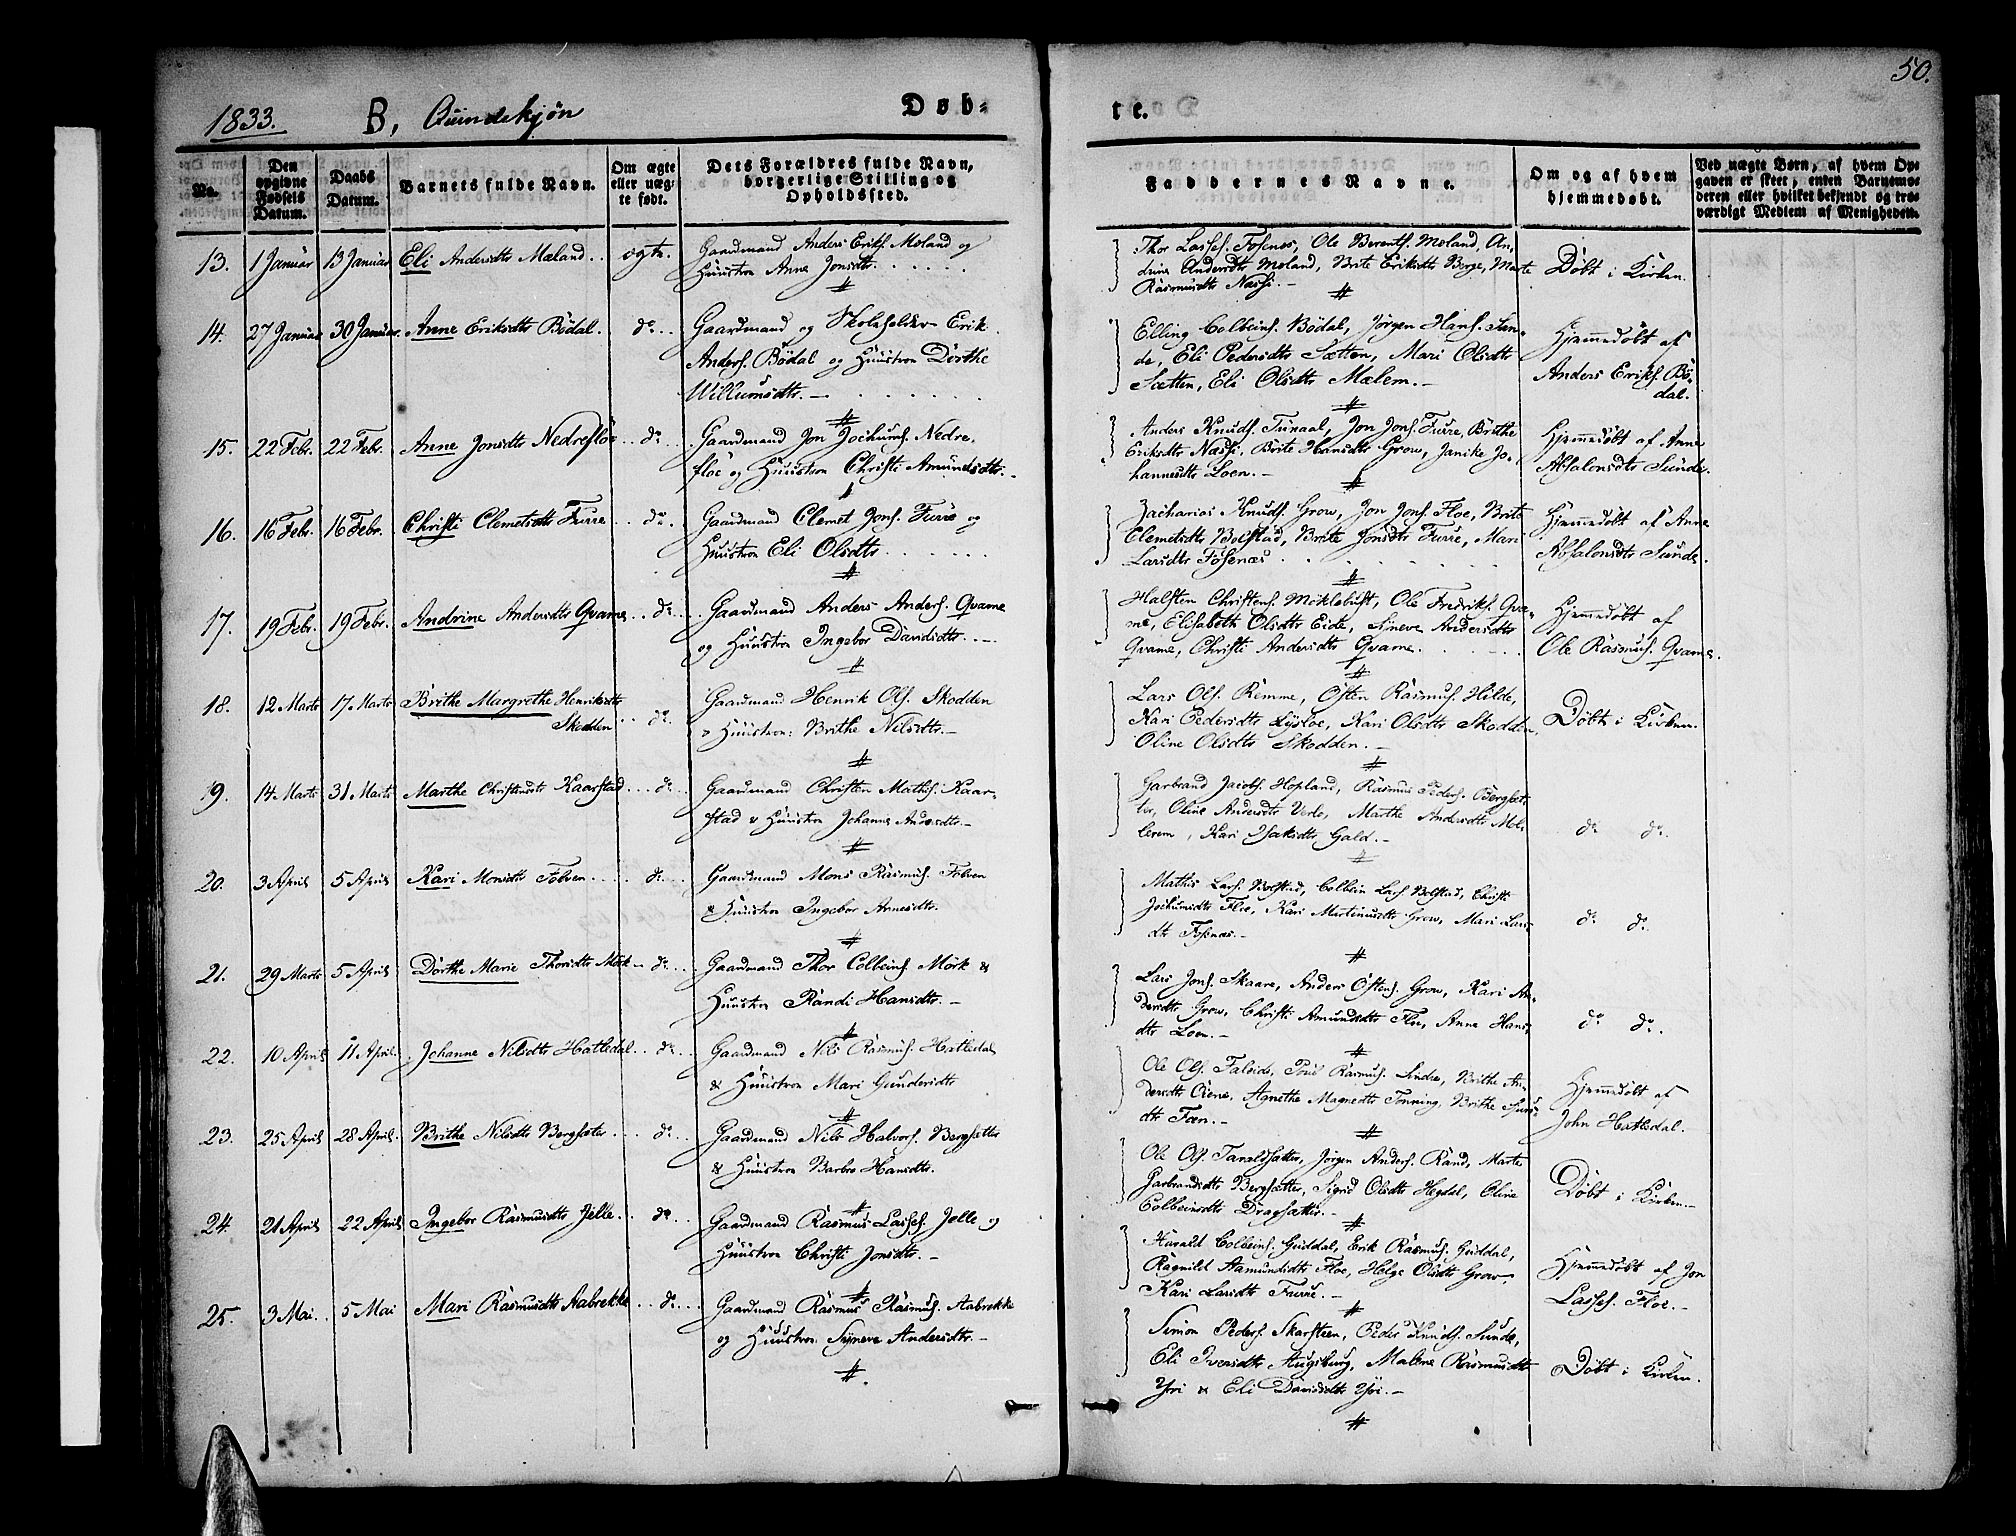 50.
1833. B, Quindekjøn Døb- te.
No.
Den opgivne Fødsels Datum.
Daabs Datum.
Barnets fulde Navn.
Om ægte eller uægte født.
Dets Forældres fulde Navn, borgerlige Stilling og Opholdssted.
Faddernes Navne.
Om og af hvem hjemmedøbt.
Ved uægte Børn, af hvem Opgaven er skeet, enten Barnemoderen eller hvilket bekjendt og troværdigt Medlem af Menigheden.
13. 1 Januar 13 Januar Eli Andersdtr Mæland.. ægte.
Gaardmand Anders Eriks. Moland og
Huustron Anne Jonsdtr.
Thor Lasses. Fosenæs, Ole Berents. Moland, An-
drine Andersdtr Moland, Brite Eriksdtr Berge, Marte
Rasmusdtr Næssi.-
Døbt i Kirken.
14. 27 Januar 30 Januar Anne Eriksdtr Bödal. do
Gaardmand og Skoleholder Erik
Anders. Bödal og Huustron Dorthe
Willumsdtr.-
Elling Colbeins. Bödal, Jørgen Hans. Sun-
de, Eli Pedersdtr Sætten, Mari Olsdtr
Sætten, Eli Olsdtr Mælem.-
Hjemmedöbt af
Anders Eriks. Bö-
dal.
15. 22 Febr. 22 Febr. Anne Jonsdtr Nedrefloe do
Gaardmand Jon Jochums. Nedre-
floe og Huustron Christi Amundsdtr.
Anders Knuds. Tunaal, Jon Jons. Furre, Brithe
Eriksdtr Næssi, Brite Hansdtr Grow, Janike Jo-
hannesdtr Loen.-
Hjemmedöbt af Anne
Absalonsdtr Sunde.
16. 16 Febr. 16 Febr. Christi Clemetsdtr Furre do
Gaardmand Clemet Jons. Furre og
Huustron Eli Olsdtr.
Zacharias Knuds. Grow, Jon Jons. Floe, Brite
Clemetsdtr Bolstad, Brite Jonsdtr Furre, Mari
Larsdtr Fosenæs
Hjemmedöbt af Anne
Absalonsdtr Sunde.
17. 19 Febr. 19 Febr. Andrine Andersdtr Qvame do
Gaardmand Anders Anders. Qvame
og Huustron Ingebor Davidsdtr.
Halsten Christens. Möklebust, Ole Fredriks. Qva-
me, Elisabeth Olsdtr Eide, Syneve Andersdtr
Qvame, Christi Andersdtr Qvame.
Hjemmedöbt af
Ole Rasmus. Qvame.
18. 12 Marts 17 Marts Brithe Margrethe Henriksdtr
Skodden do
Gaardmand Henrik Ols. Skodden
& Huustron: Brithe Nilsdtr.-
Lars Ols. Remme, Osten Rasmus. Hilde,
Kari Pedersdtr Lysloe, Kari Olsdtr Skodden,
Oline Olsdtr Skodden.-
Döbt i Kirken.
19. 14 Marts 31 Marts Marthe Christensdtr Kaarstad do
Gaardmand Christen Mathis. Kaar-
stad & Huustron Johanne Andersdtr.-
Garbrand Jacobs. Hopland, Rasmus Peders. Bergsæt-
ter, Oline Andersdtr Verlo, Marthe Andersdtr Mel-
lerem, Kari Isaksdtr Gald.-
do do
20. 3 April 5 April Kari Monsdtr Folven do
Gaardmand Mons Rasmus. Folven
& Huustron Ingebor Arnesdtr.
Mathis Lars. Bolstad, Colbein Lars. Bolstad, Christi
Jochumsdtr Floe, Kari Martinusdtr Grow, Mari Lars-
dtr Fosenæs.-
do do
21. 29 Marts 5 April Dorthe Marie Thorsdtr Mork do
Gaardmand Thor Colbeins. Mörk &
Huustron Randi Hansdtr.-
Lars Jons. Skaare, Anders Ostens. Grow, Kari An-
dersdtr Grow, Christi Amundsdtr Floe, Anne Hans-
dtr Loen.-
do do
22. 10 April 11 April. Johanne Nilsdtr Hatledal do
Gaardmand Nils Rasmus. Hatledal
& Huustron Mari Gundersdtr
Ole Ols. Faleide, Poul Rasmus. Lindre, Brithe An-
dersdtr Oiene, Agnethe Magnedtr Tonning, Brithe Sjurs-
dtr Fæn.-
Hjemmedöbt af
John Hatledal.
23. 25 April 28 April. Brithe Nilsdtr Bergsæter do
Gaardmand Nils Halvors. Bergsætter
& Huustron Barbro Hansdtr.
Ole Ols. Taraldsætter, Jørgen Anders. Rand, Marte
Garbrandsdtr Bergsætter, Sigrid Olsdtr Hegdal, Oline
Colbeinsdtr Dragsætter.-
Döbt i Kirken.-
24. 21 April 22 April Ingebor Rasmusdtr Jelle do
Gaardmand Rasmus Lasses. Jelle og
Huustron Christi Jonsdtr.-
Harald Colbeins. Guddal, Erik Rasmus. Guddal,
Ragnild Aamundsdtr Floe, Helge Olsdtr Grow,
Kari Larsdtr Furre.-
Hjemmedöbt af Jon
Lasses. Floe.-
25. 3 Mai. 5 Mai Mari Rasmusdtr Aabrekke do
Gaardmand Rasmus Rasmus. Aabrekke
og Huustron Synneve Andersdtr.-
Simon Peders. Skarsteen, Peder Knuds. Sunde,
Eli Iversdtr Augsburg, Malene Rasmusdtr
Yri & Eli Davidsdtr Yri.-
Döbt i Kirken.